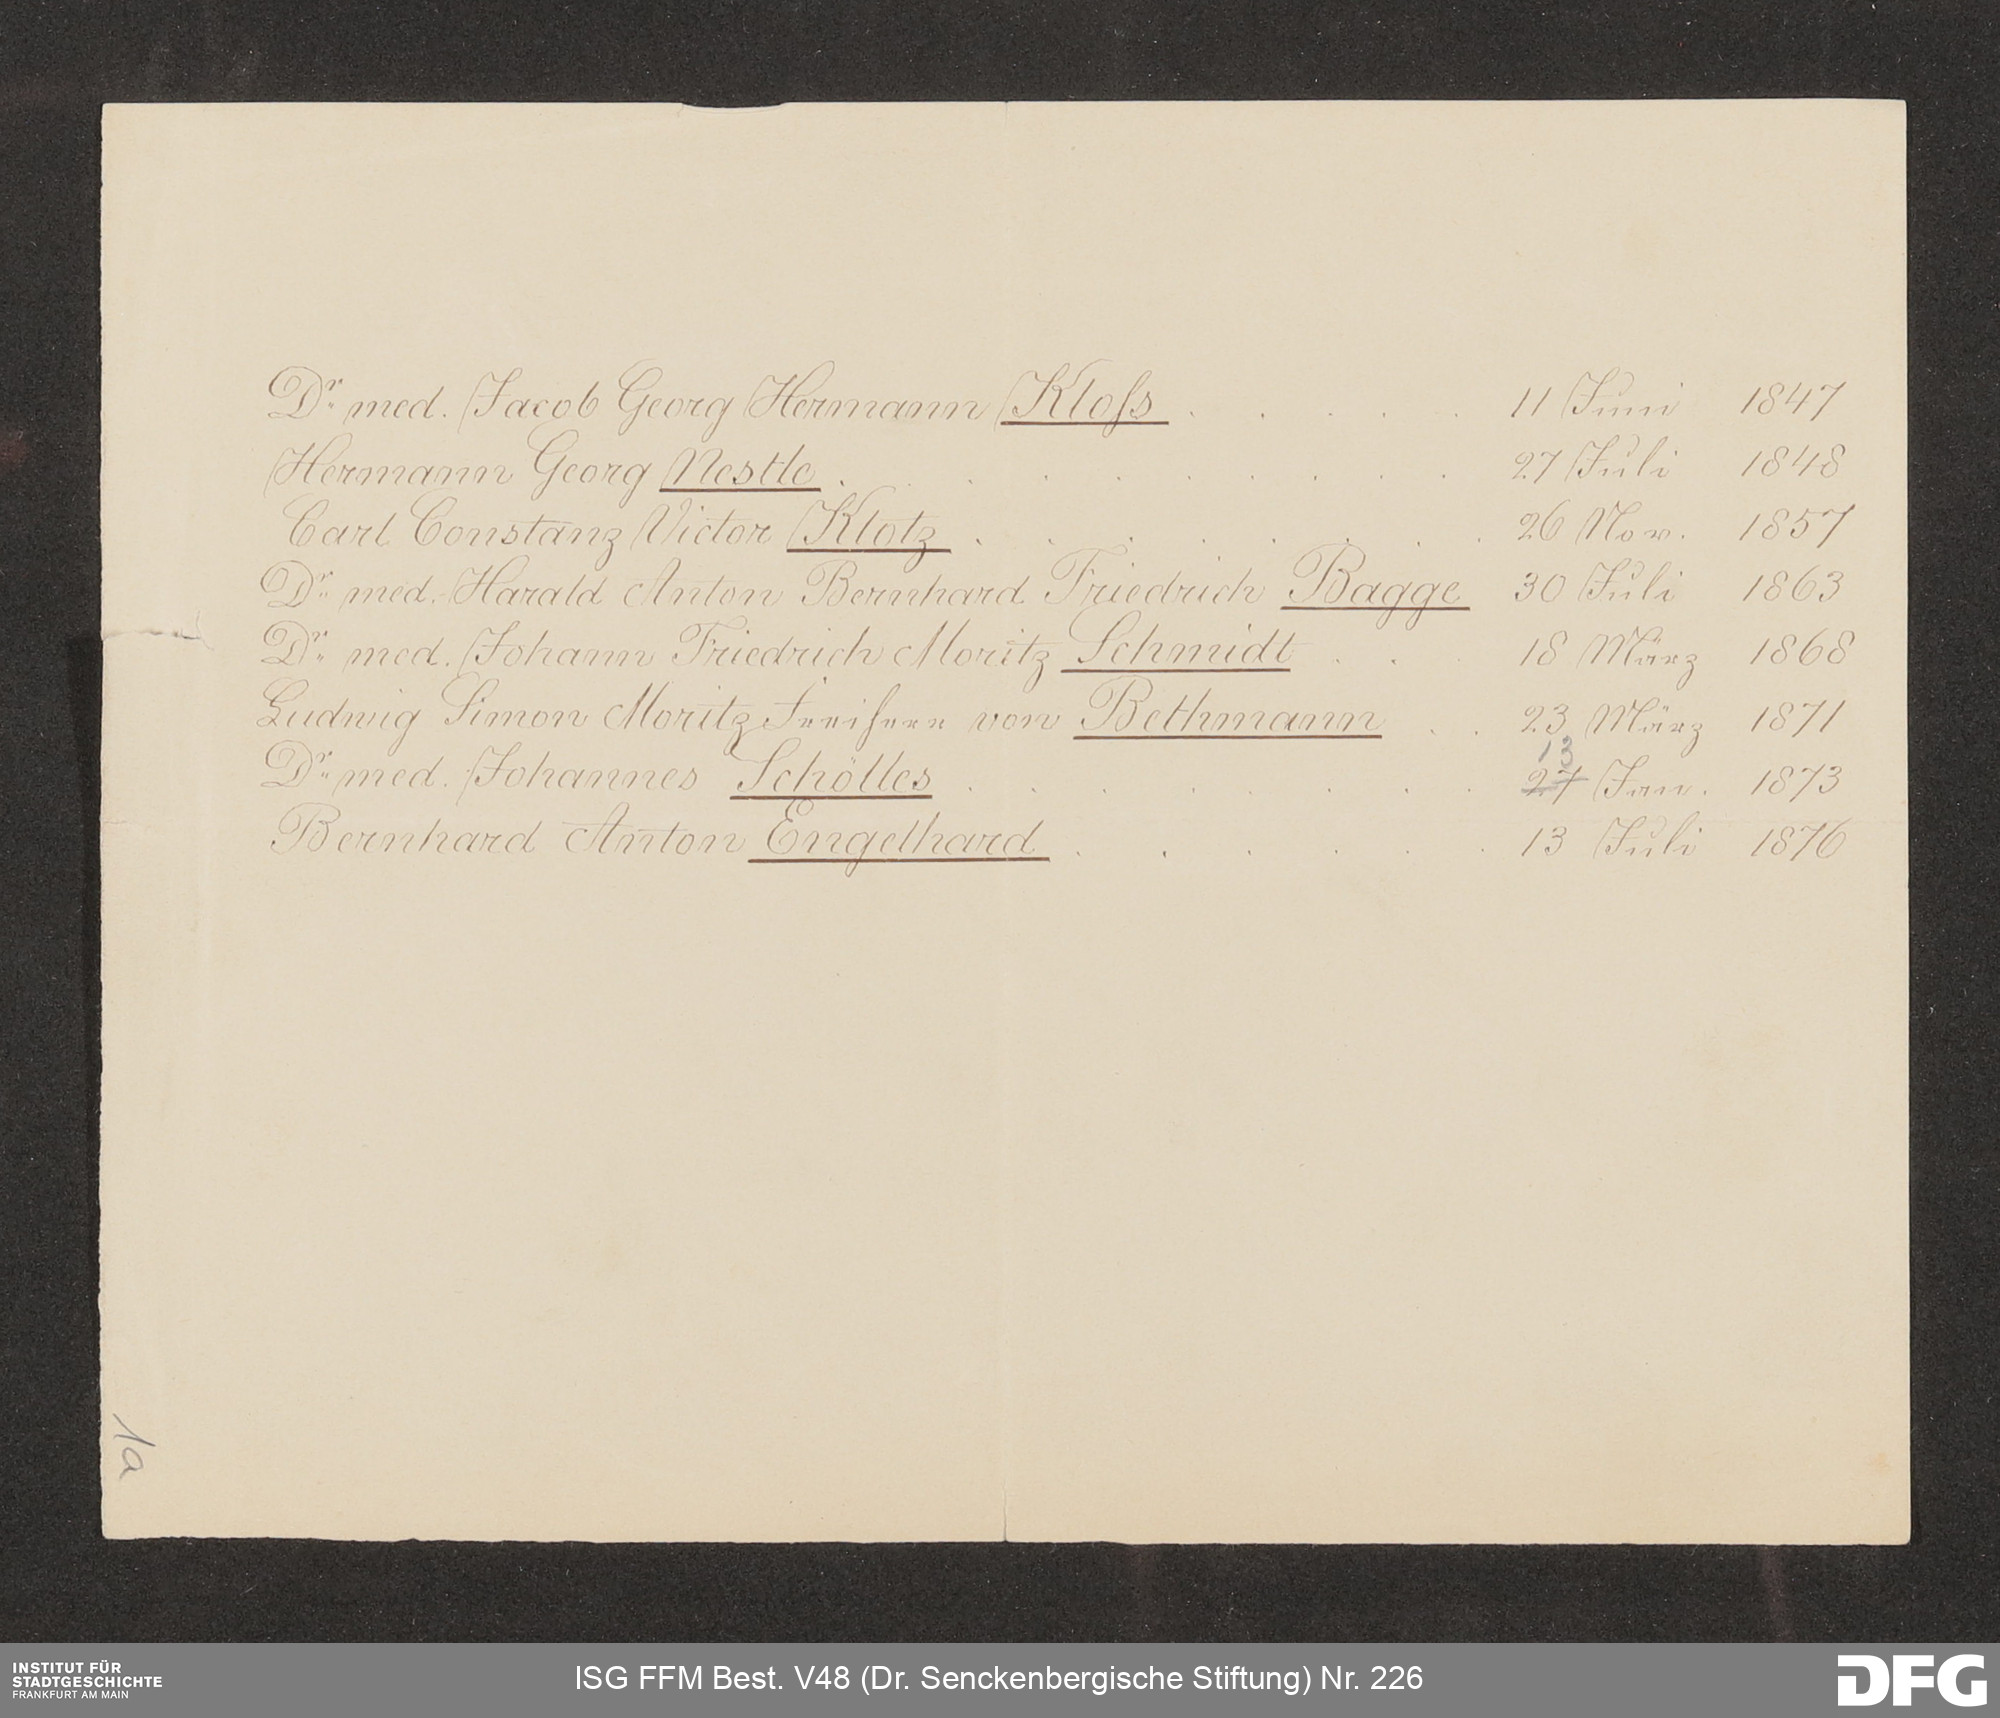 Dr. med. Jacob Georg Hermann Kloſs . . . . . 11 Juni 1847
Hermann Georg Nestle . . . . . . . . . 27 Juli 1848
Carl Constanz Victor Klotz . . . . . . . . 26 Nov. 1857
Dr. med. Harald Anton Bernhard Friedrich Bagge 30 Juli 1863
Dr. med. Johann Friedrich Moritz Schmidt . . . 18 März 1868
Ludwig Simon Moritz Freiherr von Bethmann . . 23 März 1871
13
Dr. med. Johannes Schölles . . . . . . . . 27 Jan. 1873
Bernhard Anton Engelhard . . . . . . 13 Juli 1876
1a
INSTITUT FÜR
STADTGESCHICHTE
FRANKFURT AM MAIN
ISG FFM Best. V48 (Dr. Senckenbergische Stiftung) Nr. 226
DFG